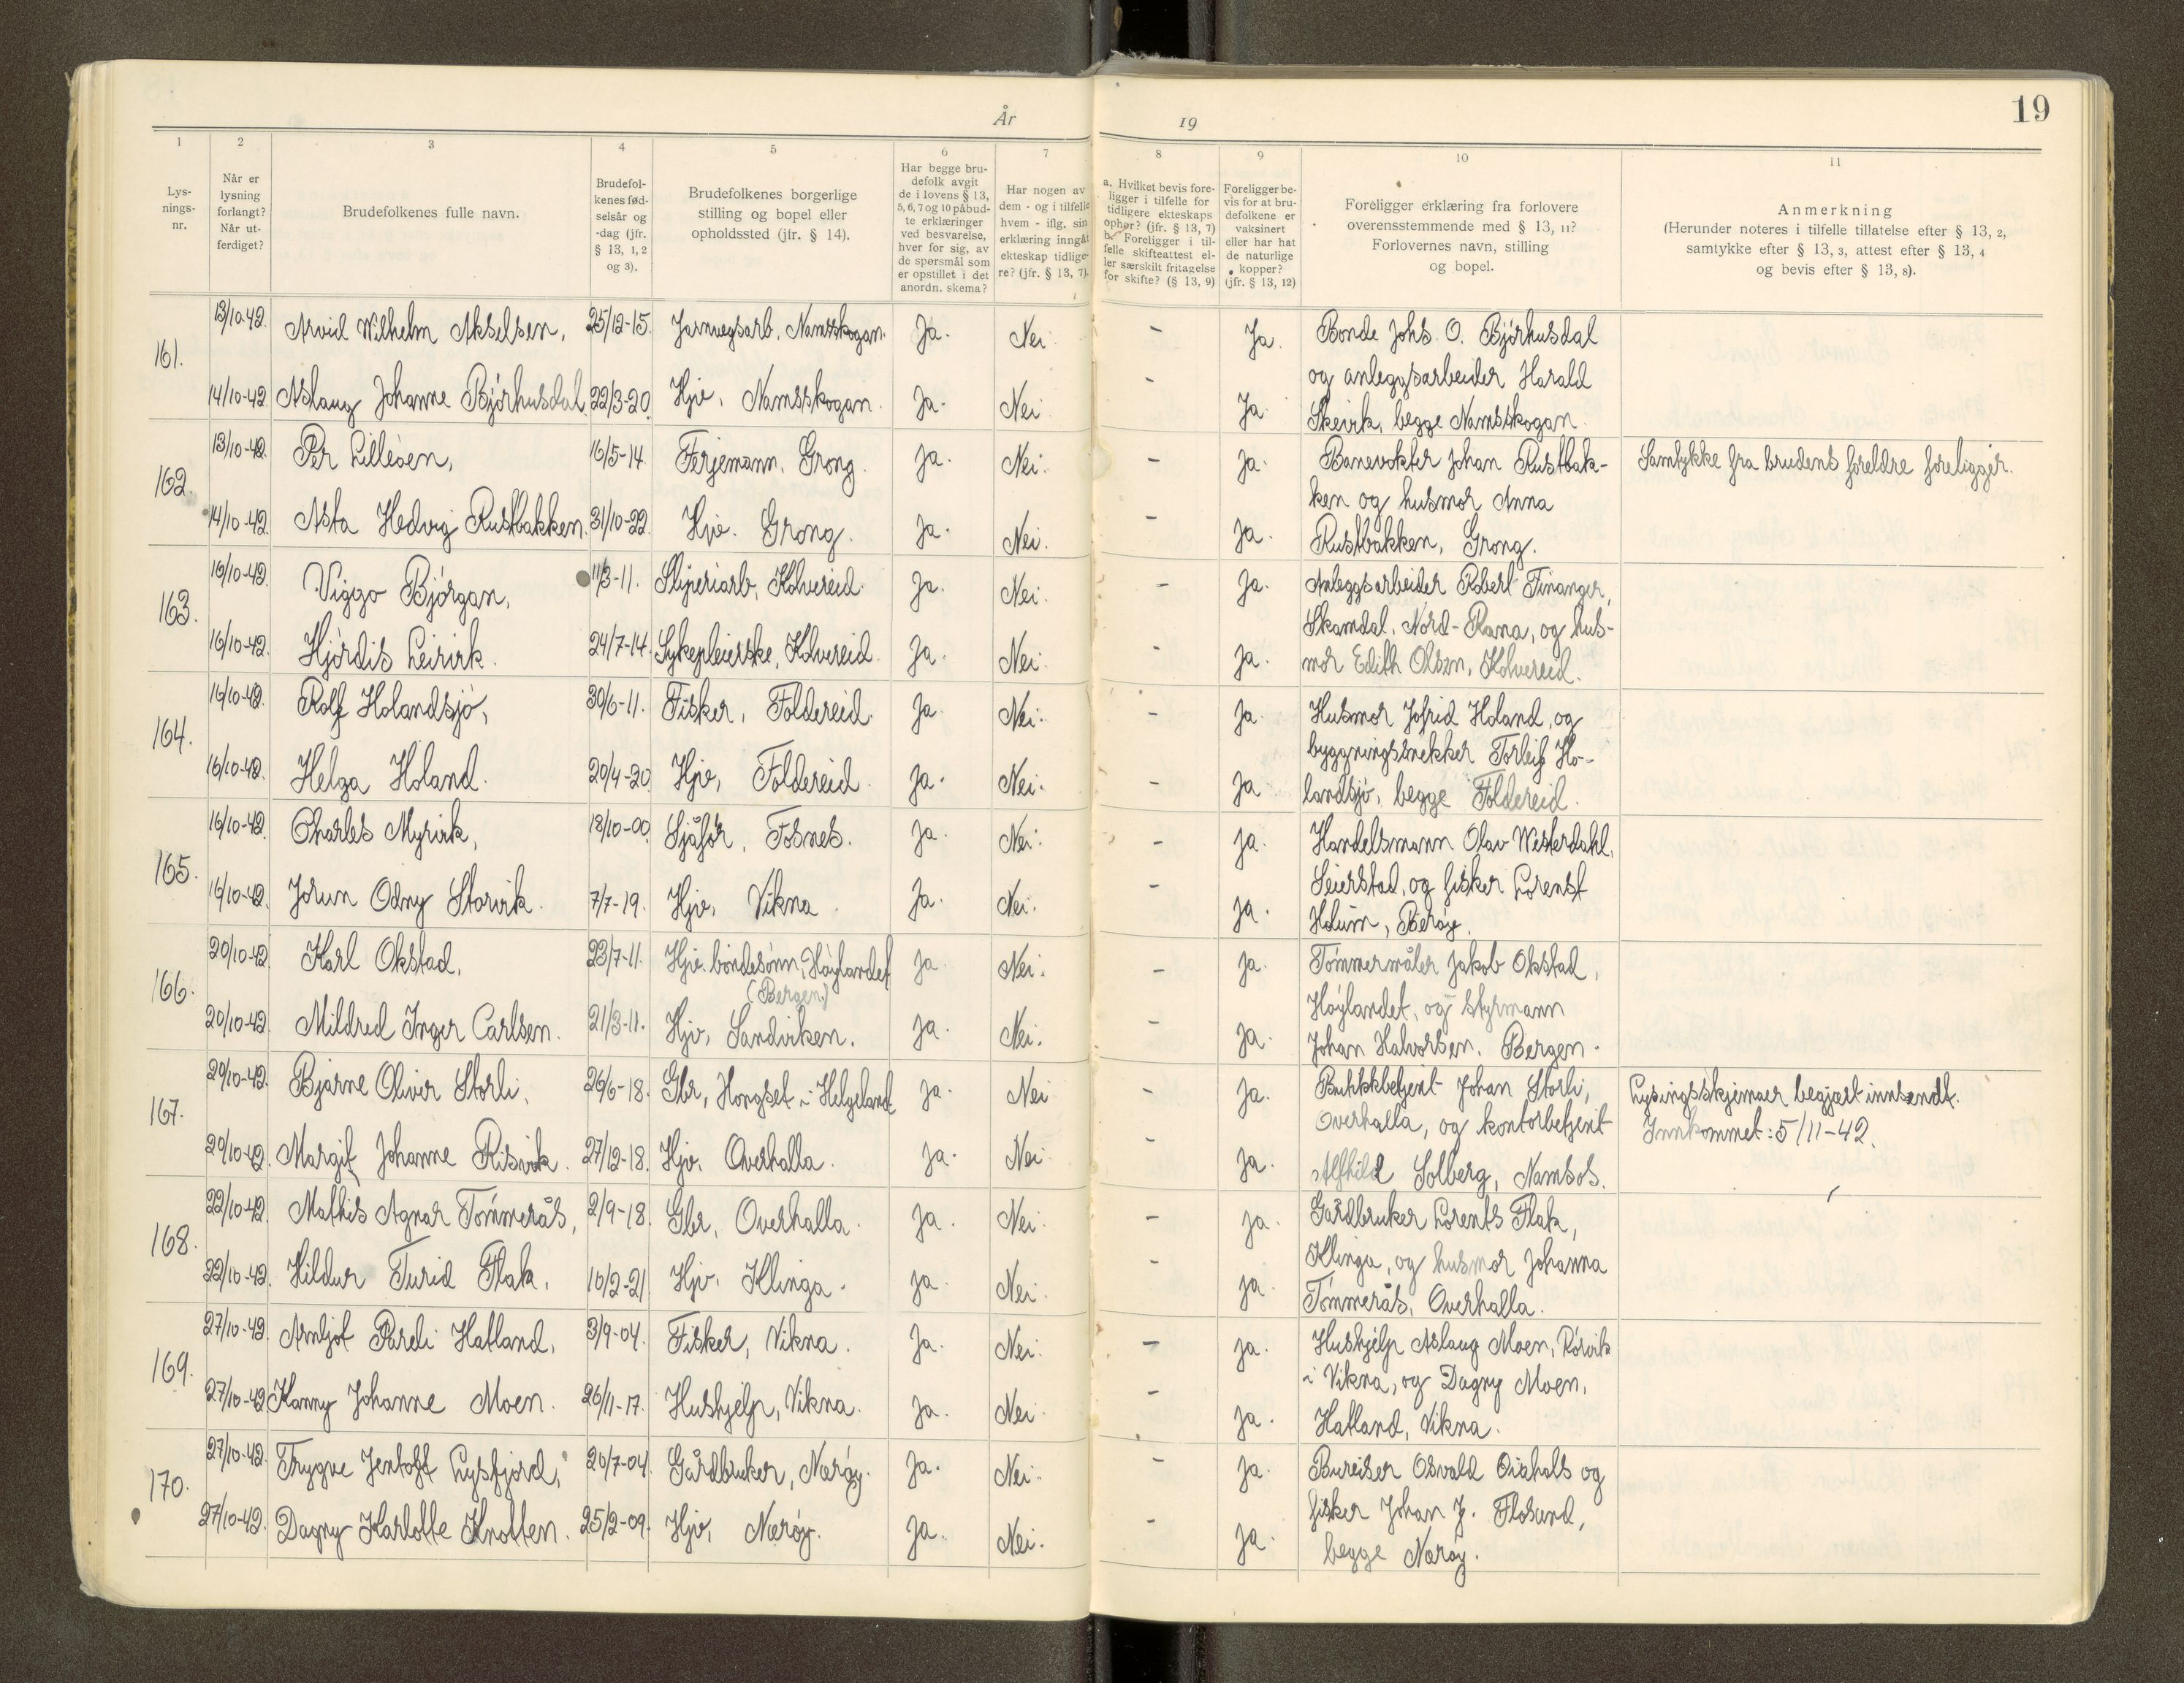 19
År 19
1 2 3 4 5 6 7 8 9 10 11
Lys-
nings-
nr.
Når er
lysning
forlangt?
Når ut-
ferdiget?
Brudefolkenes fulle navn.
Brudefol-
kenes fød-
selsår og
-dag (jfr.
§ 13, 1, 2
og 3).
Brudefolkenes borgerlige
stilling og bopel eller
opholdssted (jfr. § 14).
Har begge bru-
defolk avgit
de i lovens § 13,
5, 6, 7 og 10 påbud-
te erklæringer
ved besvarelse,
hver for sig, av
de spørsmål som
er opstillet i det
anordn. skema?
Har nogen av
dem - og i tilfelle
hvem - iflg. sin
erklæring inngåt
ekteskap tidlige-
re? (jfr. § 13, 7).
a. Hvilket bevis fore-
ligger i tilfelle for
tidligere ekteskaps
ophør? (jfr. § 13, 7)
b. Foreligger i til-
felle skifteattest el-
ler særskilt fritagelse
for skifte? (§ 13, 9)
Foreligger be-
vis for at bru-
defolkene er
vaksinert
eller har hat
de naturlige
kopper?
(jfr. § 13, 12)
Foreligger erklæring fra forlovere
overensstemmende med § 13, 11?
Forlovernes navn, stilling
og bopel.
Anmerkning
(Herunder noteres i tilfelle tillatelse efter § 13, 2,
samtykke efter § 13, 3, attest efter § 13, 4
og bevis efter § 13, 8).
161.
13/10-42. Arvid Wilhelm Akselsen, 25/12-15. Jernvegsarb. Namsskogan. Ja. Nei - Ja.
14/10-42 Aslaug Johanne Bjørhusdal 22/3-20. Hjv. Namsskogan. Ja. Nei - Ja.
Bonde Johs. O. Bjørhusdal
og anleggsarbeider Harald
Skevik, begge Namsskogan.
162.
13/10-42. Per Lilleøen, 16/5-14. Ferjemann, Grong. Ja. Nei. - Ja.
14/10-42. Asta Hedvig Rustbakken. 31/10-22. Hjv. Grong. Ja. Nei. - Ja.
Banevokter Johan Rustbak-
ken og husmor Anna
Rustbakken, Grong.
Samtykke fra brudens foreldre foreligger.
163.
16/10-42. Viggo Bjørgan, 11/3-11. Sliperiarb, Kolvereid. Ja. Nei. - Ja.
16/10-42. Hjørdis Leirvik. 24/7-14. Sykepleierske, Kolvereid. Ja. Nei. - Ja.
Anleggsarbeider Robert Finanger,
Skamdal, Nord-Rana, og hus-
mor Edith Olsen, Kolvereid.
164.
16/10-42. Rolf Holandsjø, 30/6-11. Fisker, Foldereid. Ja. Nei. - Ja.
16/10-42. Helga Holand. 20/4-20. Hjv, Foldereid. Ja. Nei. - Ja
Husmor Jofrid Holand, og
byggningssnekker Torleif Ho-
landsjø, begge Foldereid.
165.
16/10-42. Charles Myrvik, 18/10-00. Sjåfør, Fosnes. Ja. Nei. - Ja.
16/10-42. Jorun Odny Storvik. 7/7-19. Hjv, Vikna. Ja. Nei. - Ja.
Handelsmann Olav Westerdahl,
Seierstad, og fisker Lorenst
Holum, Borøy.
166.
20/10-42 Karl Okstad, 23/7-11. Hjv. bondesønn, Høylandet Ja Nei. - Ja.
(Bergen.)
20/10-42. Mildred Inger Carlsen. 21/3-11. Hjv, Sandviken. Ja. Nei. - Ja.
Tømmermåler Jakob Okstad,
Høylandet, og styrmann
Johan Halvorsen. Bergen.
167.
20/10-42. Bjarne Oliver Storli, 26/6-18. Gbr, Hongset i Helgeland Ja. Nei - Ja.
20/10-42. Margit Johanne Risvik. 27/12-18. Hjv. Overhalla. Ja. Nei - Ja.
Butikkbetjent Johan Storli,
Overhalla, og kontorbetjent
Alfhild Solberg, Namsos.
Lysingsskjemaer begjært innsendt.
Innkommet: 5/11-42.
168.
22/10-42. Mathis Agnar Tømmerås, 2/9-18. Gbr, Overhalla. Ja. Nei - Ja.
22/10-42. Hildur Turid Flak. 10/2-21. Hjv. Klinga. Ja. Nei. - Ja.
Gårdbruker Lorents Flak,
Klinga, og husmor Johanna
Tømmerås, Overhalla.
169.
27/10-42. Arnljot Pareli Hatland, 3/9-04. Fisker, Vikna. Ja. Nei. - Ja.
27/10-42 Hanny Johanne Moen. 26/11-17. Hushjelp, Vikna. Ja. Nei - Ja.
Hushjelp Aslaug Moen, Rørvik
i Vikna, og Dagny Moen,
Hatland, Vikna.
170.
27/10-42. Trygve Jentoft Lysfjord, 20/7-04. Gårdbruker, Nærøy. Ja. Nei. - Ja.
27/10-42. Dagny Karlotte Knotten. 25/2-09. Hjv, Nærøy. Ja. Nei. - Ja.
Bureiser Osvald Oixhals og
fisker Johan J. Flosund,
begge Nærøy.